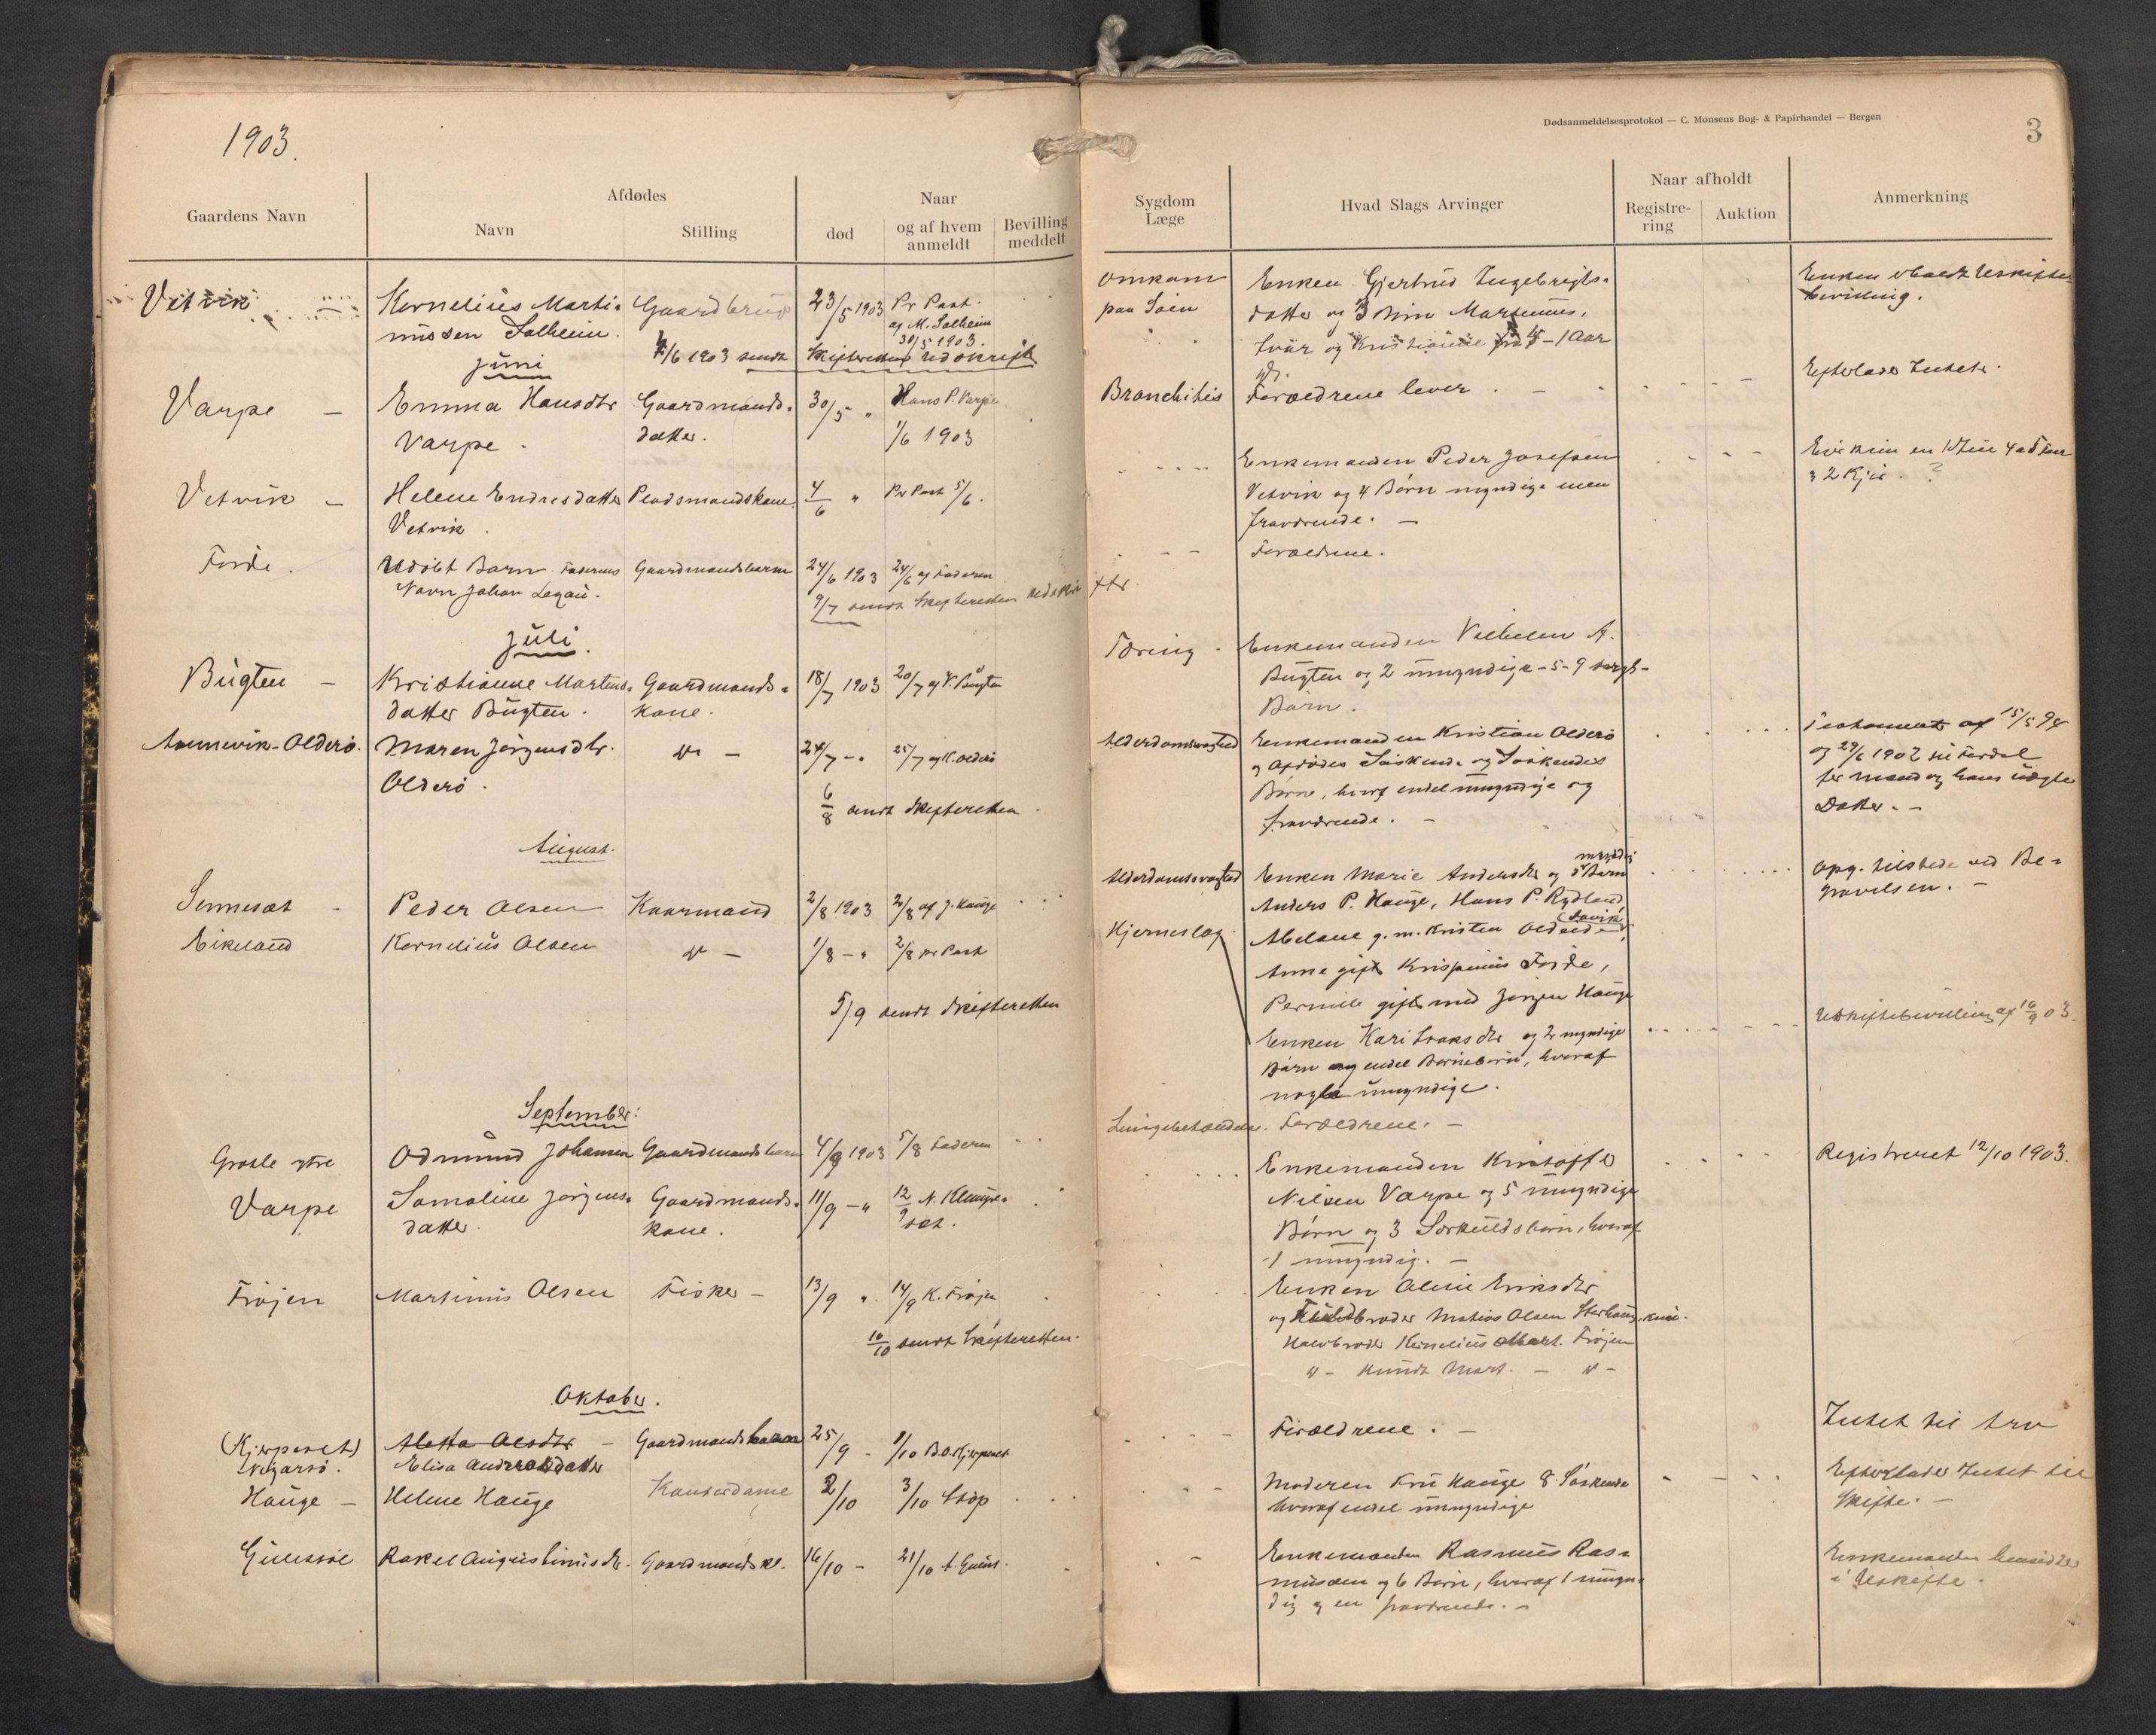 1903.
Dødsanmeldelsesprotokol — C. Monsens Bog- & Papirhandel — Bergen
3
Gaardens Navn
Afdødes
Navn
Stilling
Naar
død
og af hvem anmeldt
Bevilling meddelt
Sygdom
Læge
Hvad Slags Arvinger
Naar afholdt
Registre-
ring
Auktion
Anmerkning
Vetvik
Kornelius Marti-
nussen Solheim.
Gaardbrug
23/5 1903
Pr Post.
og M. Solheim
30/5 1903.
omkom
paa Søen
Enken Gjertrud Ingebrigts-
datter og 3 Børn Martinus,
Ivar og Kristianne 1 Aar
Enken Uskifte-
bevilling.
/6 1903 sendt Skifteretten Udskrift
Juni
Varpe —
Emma Hansdtr
Varpe.
Gaardmands-
datter.
30/5 "
Hans P. Varpe
1/6 1903
Bronchitis
Forældrene lever. —
Efterlader Intet.
Vetvik —
Helene Endresdatter
Vetvik.
Pladsmandskone.
4/6 "
Pr Post 5/6.
Enkemanden Peder Josefsen
Vetvik og 4 Børn myndige men
fraværende. —
2 Kjør. ?
Førde.
Udøbt Barn Faderens
Navn Johan
Gaardmandsbarn
24/6 1903
24/6 af Faderen
Forældrene.
9/7 sendt Skifteretten Udskr
Juli.
Bugten —
Kristianne Martens-
datter Bugten.
Gaardmands-
kone.
18/7 1903
20/7 af V. Bugten
Tæring.
Enkemanden Vilhelm A.
Bugten og 2 umyndige - 5 - 9
Børn.
Annevik-Olderø.
Maren Jørgensdtr.
Olderø.
" —
24/7 — "
25/7 af K. Olderø
Alderdomssvaghed
Enkemanden Kristian Olderø
og Afdødes Søskende og Søskendes
Børn, hvoraf endel umyndige og
fraværende. —
Testament af 15/5 98
og 29/6 1902 til Fordel
for mand og hans uægte
Datter. —
6/8 sendt Skifteretten.
August.
Sennesæt -
Peder Olsen
Kaarmand
2/8 1903
2/8 af J. Hauge
Alderdomssvaghed
Enken Marie Andersdtr og 5 myndig Børn
Anders P. Hauge, Hans P. Rydland
Abelone g. m. Kristen Oldeide (Davik)
Anne gift Krispinus Førde,
Pernille gift med Jørgen Hauge
opg. tilstede ved Be-
gravelsen. —
Eikeland
Kornelius Olsen
" —
1/8 — "
2/8 pr Post
Hjerneslag.
Enken Kari Isaksdtr og 2 myndige
Børn og endel Børnebørn, hvoraf
nogle umyndige.
Uskiftebevilling af 16/9 03.
5/9 sendt Skifteretten
September.
Grotle ytre
Odmund Johansen
Gaardmandsbarn
4/9 1903
5/8 Faderen
Lungebetændelse.
Forældrene. —
Varpe
Samoline Jørgens-
datter.
Gaardmands-
kone.
11/9 — "
12/9 N. Klungre-
sæt.
Enkemanden Kristoffer
Nilsen Varpe og 5 umyndige
Børn og 3 Særkuldsbørn, hvoraf
1 umyndig. —
Registreret 12/10 1903.
Frøjen
Martinus Olsen
Fisker —
13/9 "
14/9 K. Frøjen
Enken Oline Eriksdtr
og Fuldbroder Matias Olsen
Halvbroder Kornelius Mart. Frøjen
" — Knudt Mart. — " —
10/10 sendt Skifteretten.
Oktober.
(Kjerpeset)
Aletta Olsdtr —
Elisa Andreasdatter
Gaardmandsbarn
25/9 -
1/10 B. O. Kjerpeset
Forældrene. —
Intet til
Hauge —
Helene Hauge
2/10
3/10
Moderen Fru Hauge 8 Søskende
hvoraf endel umyndige
Efterlader Intet til
Skifte. —
Rakel Augustinusdtr.
Gaardmandsk.
16/10 —
21/10
Enkemanden Rasmus Ras-
mussen og 6 Børn, hvoraf 1 umyn-
dig og en fraværende. —
Enkemanden hensidder
i Uskifte.